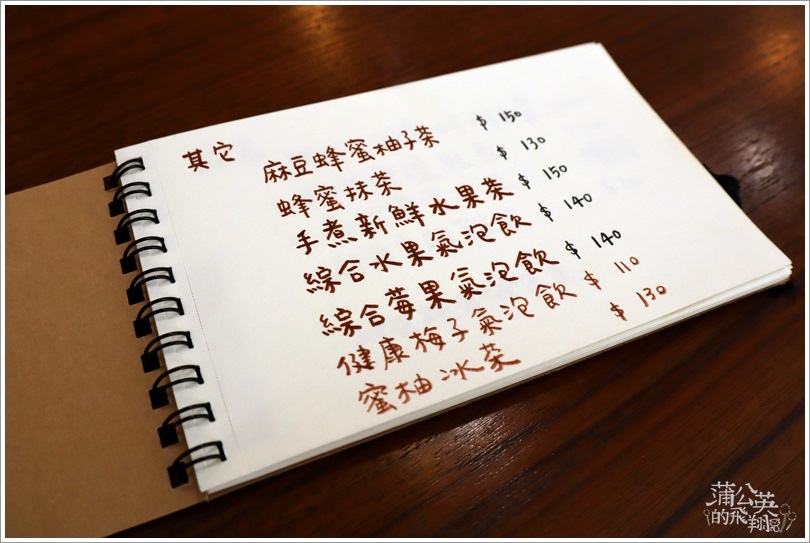 其它
麻豆蜂蜜柚子茶 $150
蜂蜜抹茶 $130
手煮新鮮水果茶 $150
綜合水果氣泡飲 $140
綜合莓果氣泡飲 $140
健康梅子氣泡飲 $110
蜜柚冰茶 $130
蒲公英
的飛翔日記